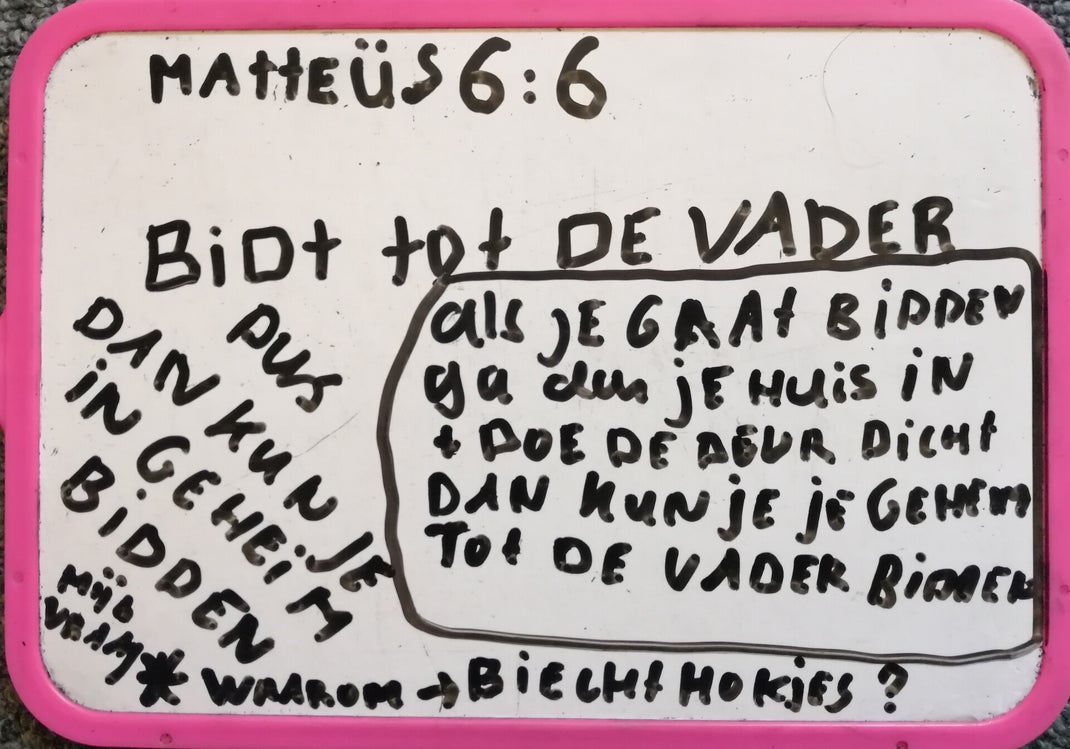 MATTEÜS 6:6
BiDt tot DE VADER
als JE GAAt BiDDEN
ga dan jE HUis iN
+ DOE DE DEUR DiCHt
DAN KUN JE jE GEHEIM
Tot DE VADER BiDDEN
DUS
DAN KUN JE
iN GEHEiM
BiDDEN
Mijn
VRAAG * WAAROM → BiECHt HOKjES ?